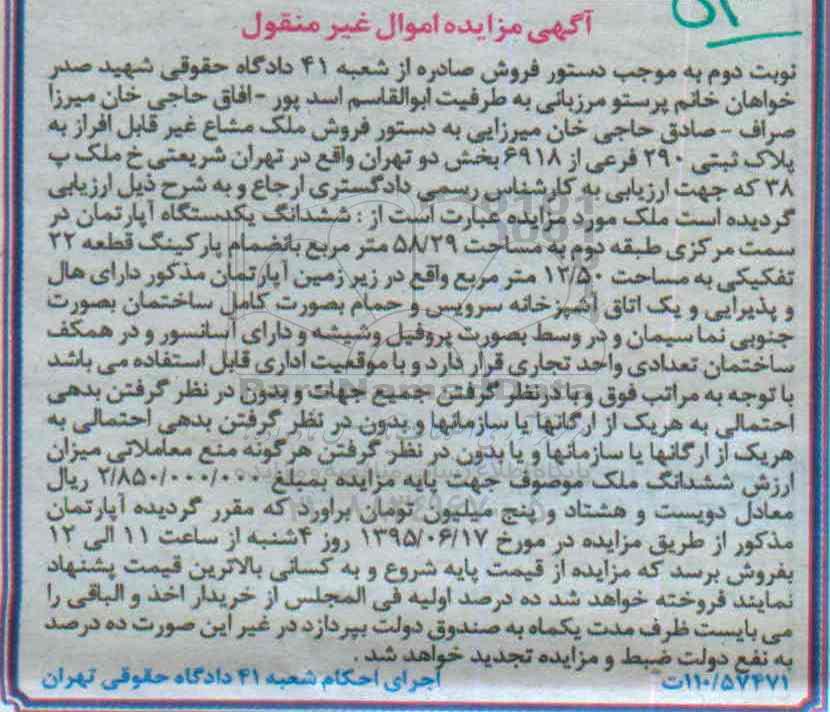 آگهی مزایده اموال غیر منقول
نوبت دوم به موجب دستور فروش صادره از شعبه ۴۱ دادگاه حقوقی شهید صدر
خواهان خانم پرستو مرزبانی به طرفیت ابوالقاسم اسد پور -افاق حاجی خان میرزا
صراف - صادق حاجی خان میرزایی به دستور فروش ملک مشاع غیر قابل افراز به
پلاک ثبتی ۲۹۰ فرعی از ۶۹۱۸ بخش دو تهران واقع در تهران شریعتی خ ملک پ
۳۸ که جهت ارزیابی به کارشناس رسمی دادگستری ارجاع و به شرح ذیل ارزیابی
گردیده است ملک مورد مزایده عبارت است از : ششدانگ یکدستگاه آپارتمان در
سمت مرکزی طبقه دوم به مساحت ۵۸/۲۹ متر مربع بانضمام پارکینگ قطعه ۲۲
تفکیکی به مساحت ۱۲/۵۰ متر مربع واقع در زیر زمین آپارتمان مذکور دارای هال
و پذیرایی و یک اتاق آشپزخانه سرویس و حمام بصورت کامل ساختمان بصورت
جنوبی نما سیمان و در وسط بصورت پروفیل وشیشه و دارای آسانسور و در همکف
ساختمان تعدادی واحد تجاری قرار دارد و با موقعیت اداری قابل استفاده می باشد
با توجه به مراتب فوق و با درنظر گرفتن جمیع جهات و بدون در نظر گرفتن بدهی
احتمالی به هریک از ارگانها یا سازمانها و بدون در نظر گرفتن بدهی احتمالی به
هریک از ارگانها یا سازمانها و یا بدون در نظر گرفتن هرگونه منع معاملاتی میزان
ارزش ششدانگ ملک موصوف جهت پایه مزایده بمبلغ ۲/۸۵۰/۰۰۰/۰۰۰ ریال
معادل دویست و هشتاد و پنج میلیون تومان براورد که مقرر گردیده آپارتمان
مذکور از طریق مزایده در مورخ ۱۳۹۵/۰۶/۱۷ روز ۴شنبه از ساعت ۱۱ الی ۱۲
بفروش برسد که مزایده از قیمت پایه شروع و به کسانی بالاترین قیمت پشنهاد
نمایند فروخته خواهد شد ده درصد اولیه فی المجلس از خریدار اخذ و الباقی را
می بایست ظرف مدت یکماه به صندوق دولت بپردازد در غیر این صورت ده درصد
به نفع دولت ضبط و مزایده تجدید خواهد شد .
۱۱۰/۵۷۴۷۱ت اجرای احکام شعبه ۴۱ دادگاه حقوقی تهران